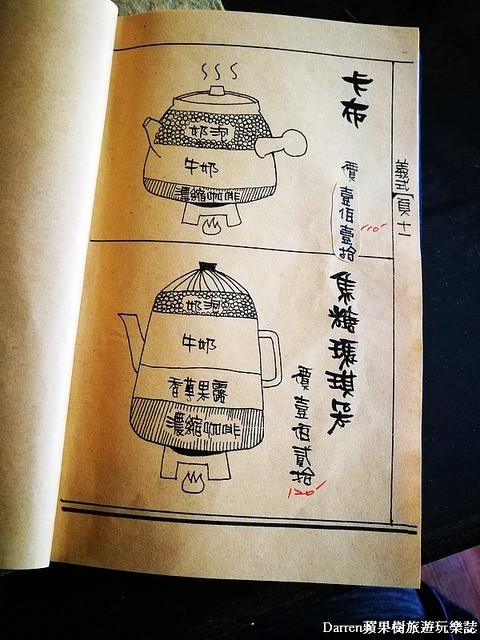 義式 頁十一
卡布
價壹佰壹拾
110
奶泡
牛奶
濃縮咖啡
焦糖瑪琪朵
價壹佰貳拾
120
奶泡
牛奶
香草果露
濃縮咖啡
Darren蘋果樹旅遊玩樂誌